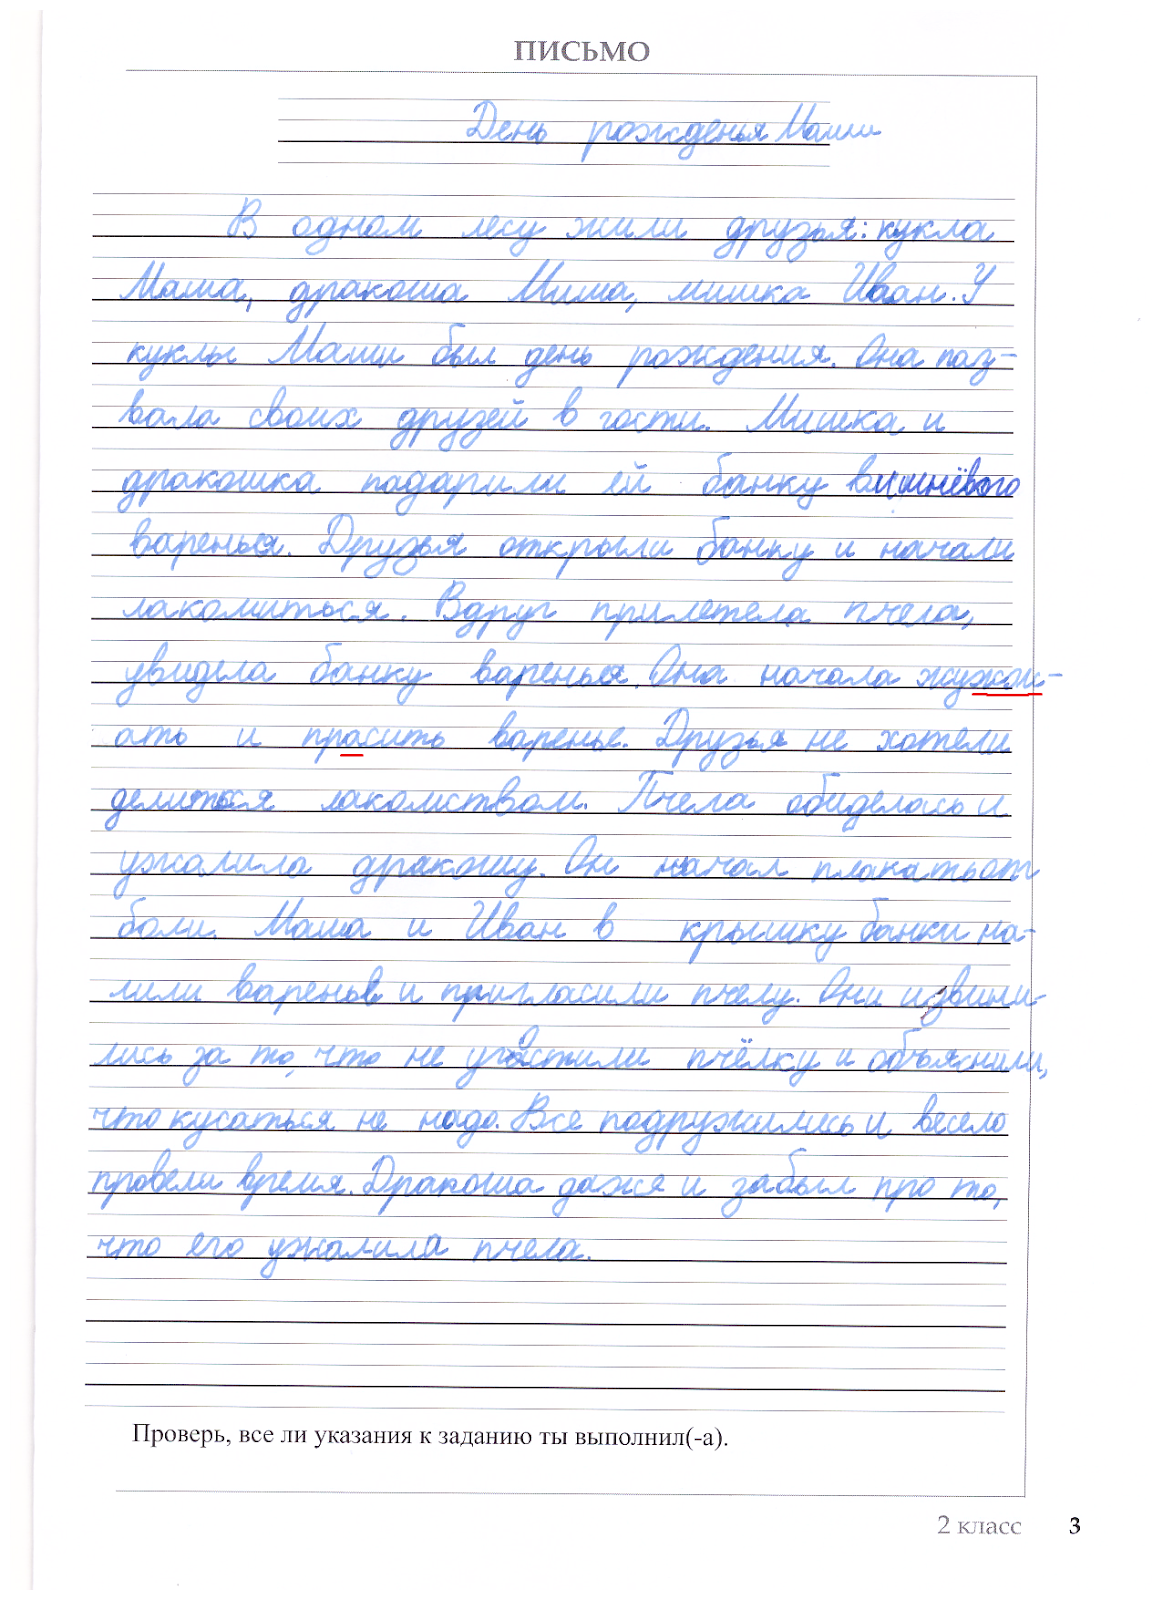 ПИСЬМО
День рожденья Маши
В одном лесу жили друзья: кукла
Маша, дракоша Миша, мишка Иван. У
куклы Маши был день рождения. Она паз-
вала своих друзей в гости. Мишка и
дракошка падарили ей банку вишнёвого
варенья. Друзья открыли банку и начали
лакомиться. Вдруг прилетела пчела,
увидела банку варенья. Она начала жужж-
ать и прасить варенье. Друзья не хотели
делиться лакомством. Пчела обиделась и
ужалила дракошу. Он начал плакать от
боли. Маша и Иван в крышку банки на-
лили варенье и пригласили пчелу. Они извини-
лись за то, что не угостили пчёлку и объяснили,
что кусаться не надо. Все подружились и весело
провели время. Дракоша даже и забыл про то,
что его ужалила пчела.
Проверь, все ли указания к заданию ты выполнил(-а).
2 класс 3